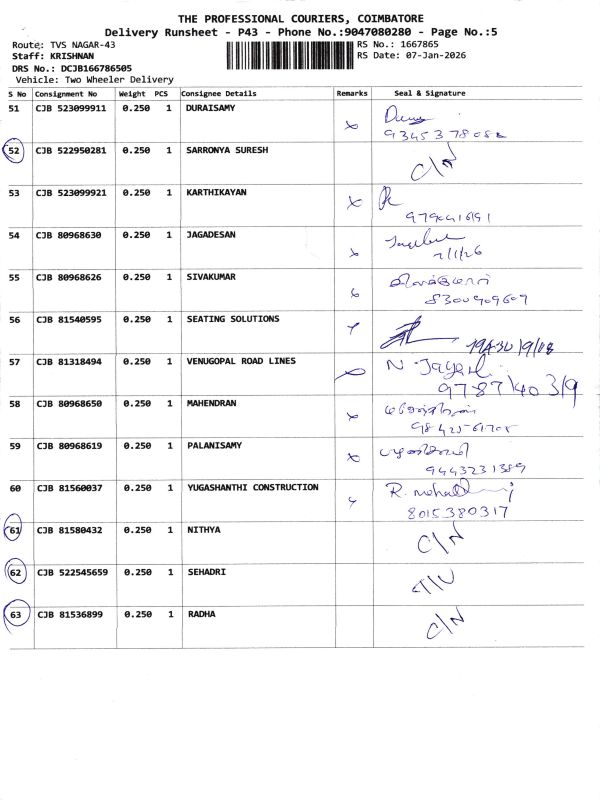 THE PROFESSIONAL COURIERS, COIMBATORE
Delivery Runsheet - P43 - Phone No.:9047080280 - Page No.:5
Route: TVS NAGAR-43
RS No.: 1667865
Staff: KRISHNAN
RS Date: 07-Jan-2026
DRS No.: DCJB166786505
Vehicle: Two Wheeler Delivery
S No Consignment No Weight PCS Consignee Details Remarks Seal & Signature
51 CJB 523099911 0.250 1 DURAISAMY x
52 CJB 522950281 0.250 1 SARRONYA SURESH C/N
53 CJB 523099921 0.250 1 KARTHIKAYAN x
54 CJB 80968630 0.250 1 JAGADESAN x
7/1/26
55 CJB 80968626 0.250 1 SIVAKUMAR
8300909609
56 CJB 81540595 0.250 1 SEATING SOLUTIONS
57 CJB 81318494 0.250 1 VENUGOPAL ROAD LINES
97871 40319
58 CJB 80968650 0.250 1 MAHENDRAN x
59 CJB 80968619 0.250 1 PALANISAMY x
பழனிசாமி
9443231389
60 CJB 81560037 0.250 1 YUGASHANTHI CONSTRUCTION
8015380317
61 CJB 81580432 0.250 1 NITHYA C/N
62 CJB 522545659 0.250 1 SEHADRI
63 CJB 81536899 0.250 1 RADHA C/N